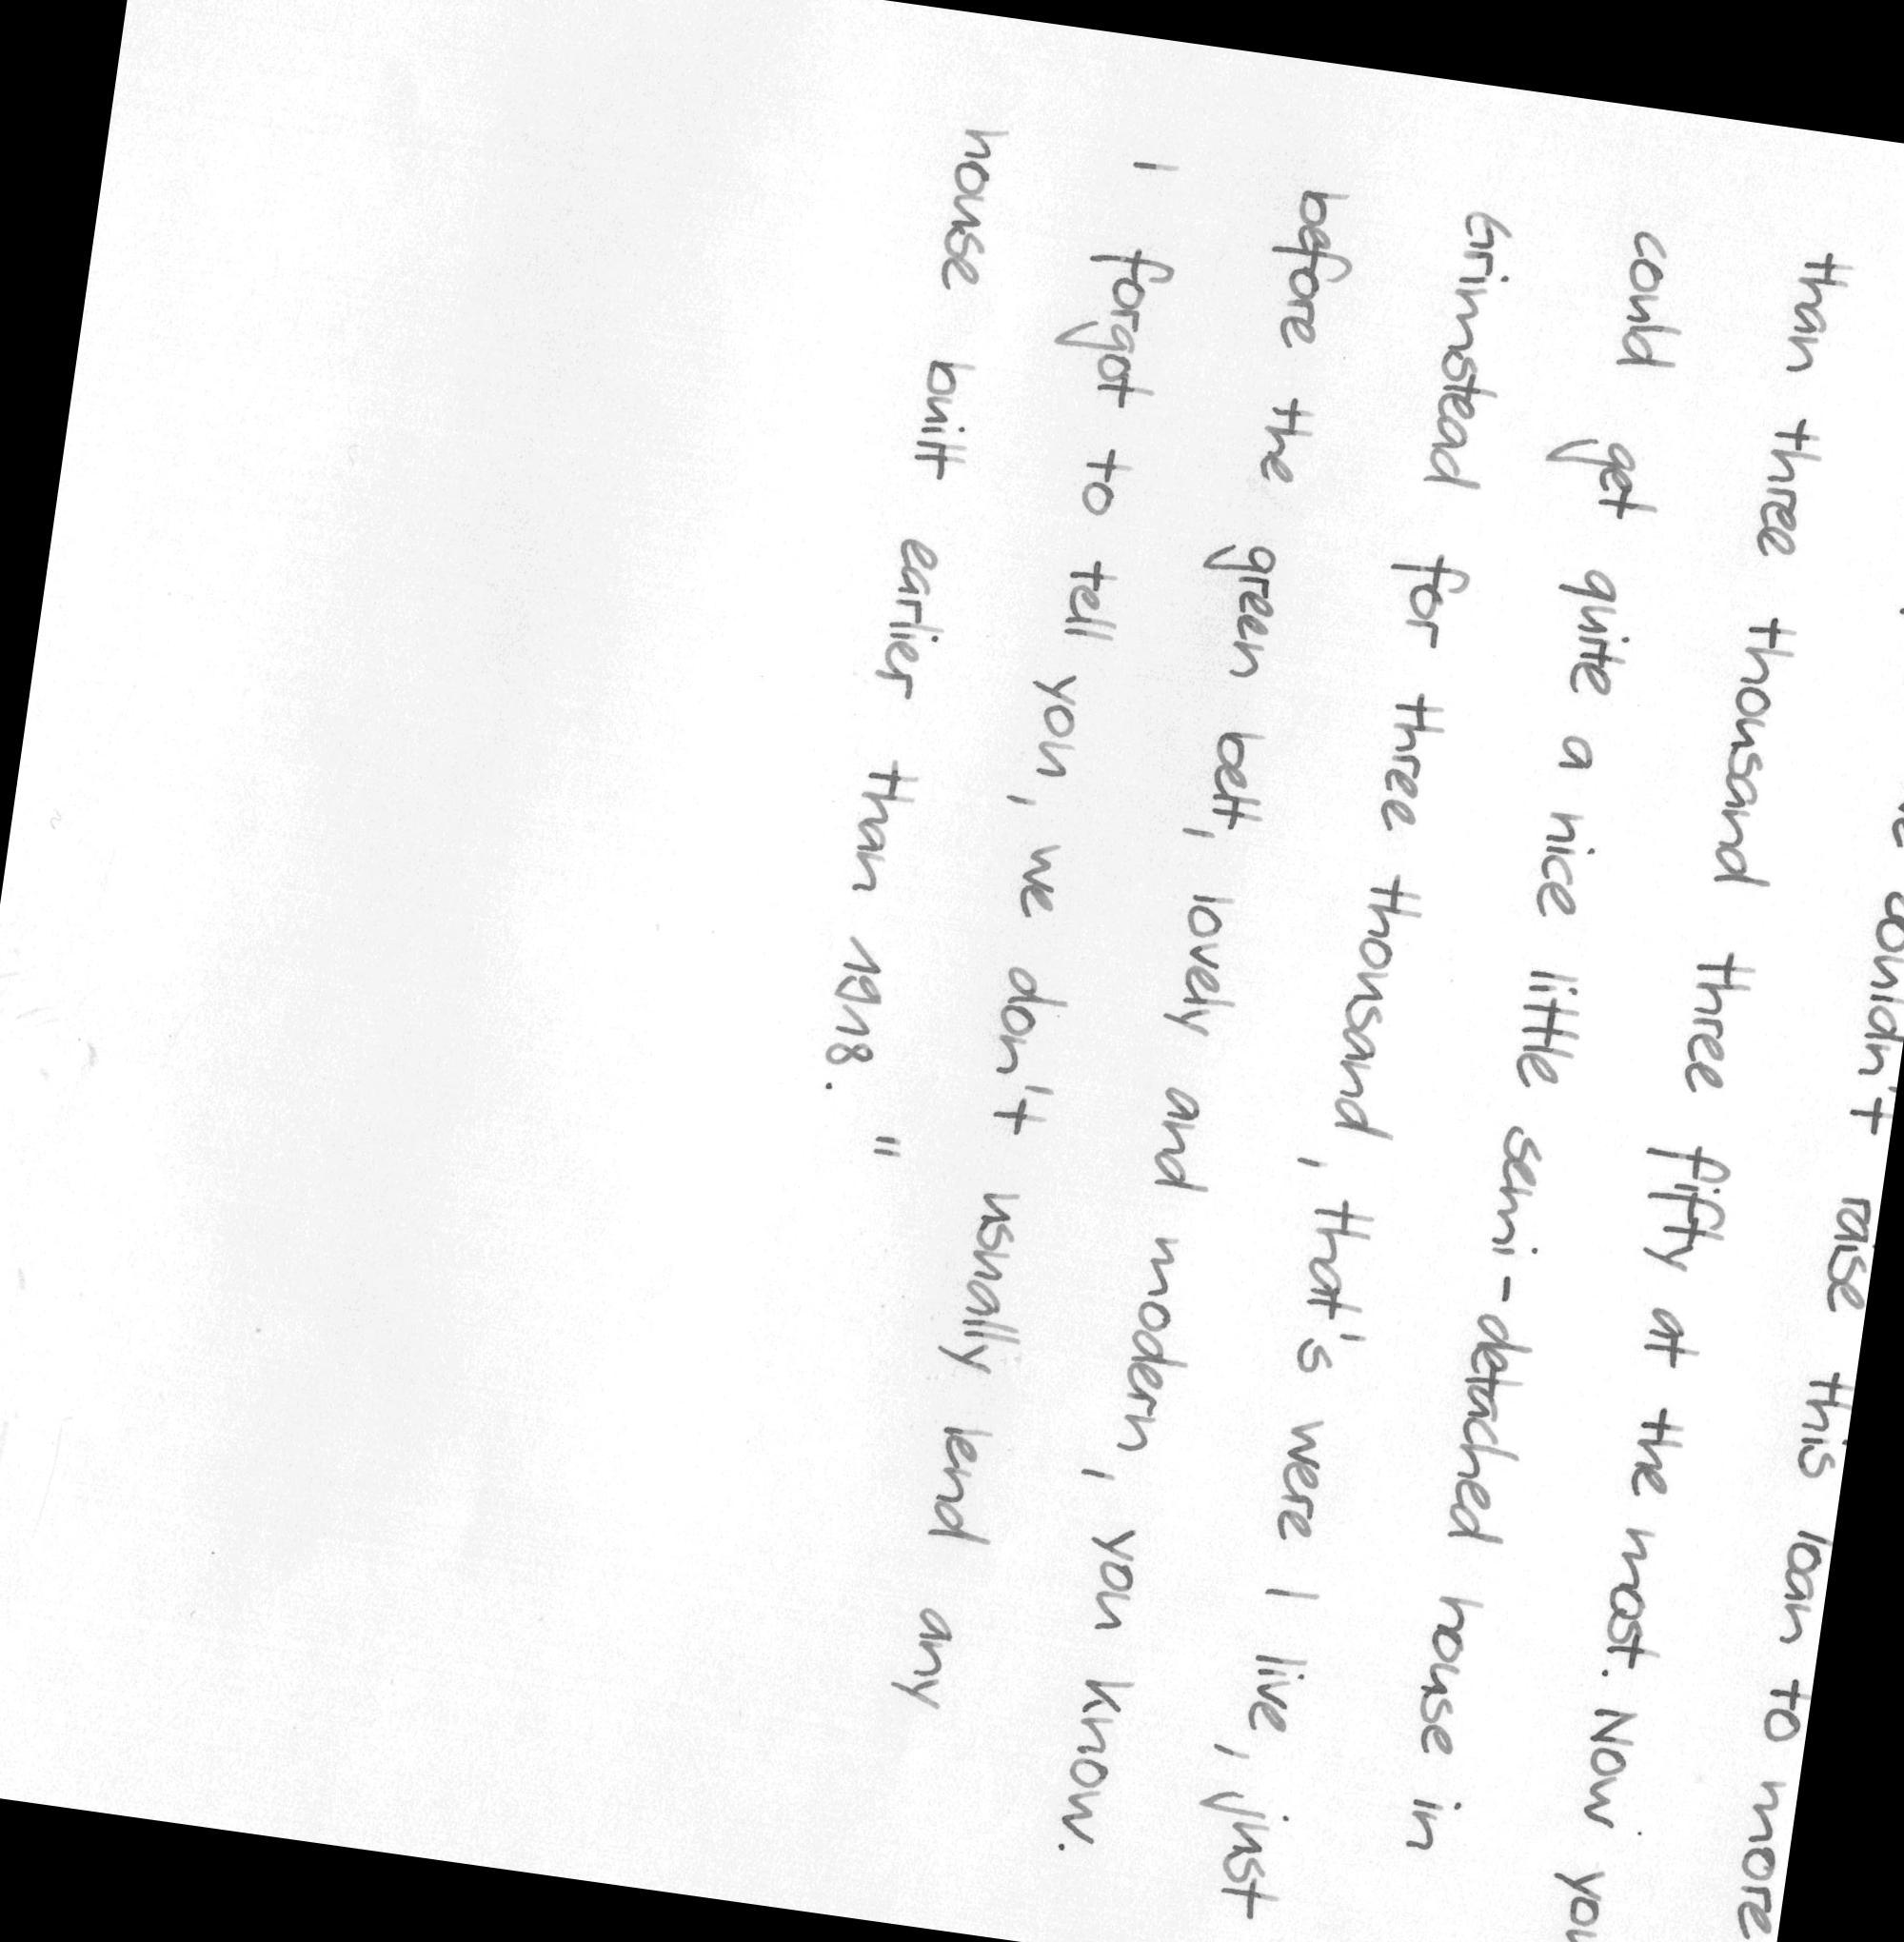 couldn't raise this loan to more
than three thousand three fifty at the most. Now you
could get quite a nice little semi-detached house in
Grimstead for three thousand, that's were I live, just
before the green belt, lovely and modern, you know.
I forgot to tell you, we don't usually lend any
house built earlier than 1918."